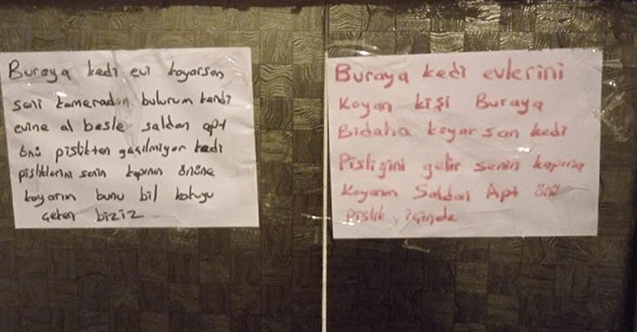 Buraya kedi evi koyarsan
seni kameradan bulurum kendi
evine al besle saldan apt
önü pislikten geçilmiyor kedi
pisliklerini senin kapının önüne
koyarım bunu bil kokuyu
çeken biziz
Buraya kedi evlerini
Koyan kişi Buraya
Bidaha koyarsan kedi
Pisliğini gelir senin kapına
Koyarım Saldan Apt önü
pislik içinde